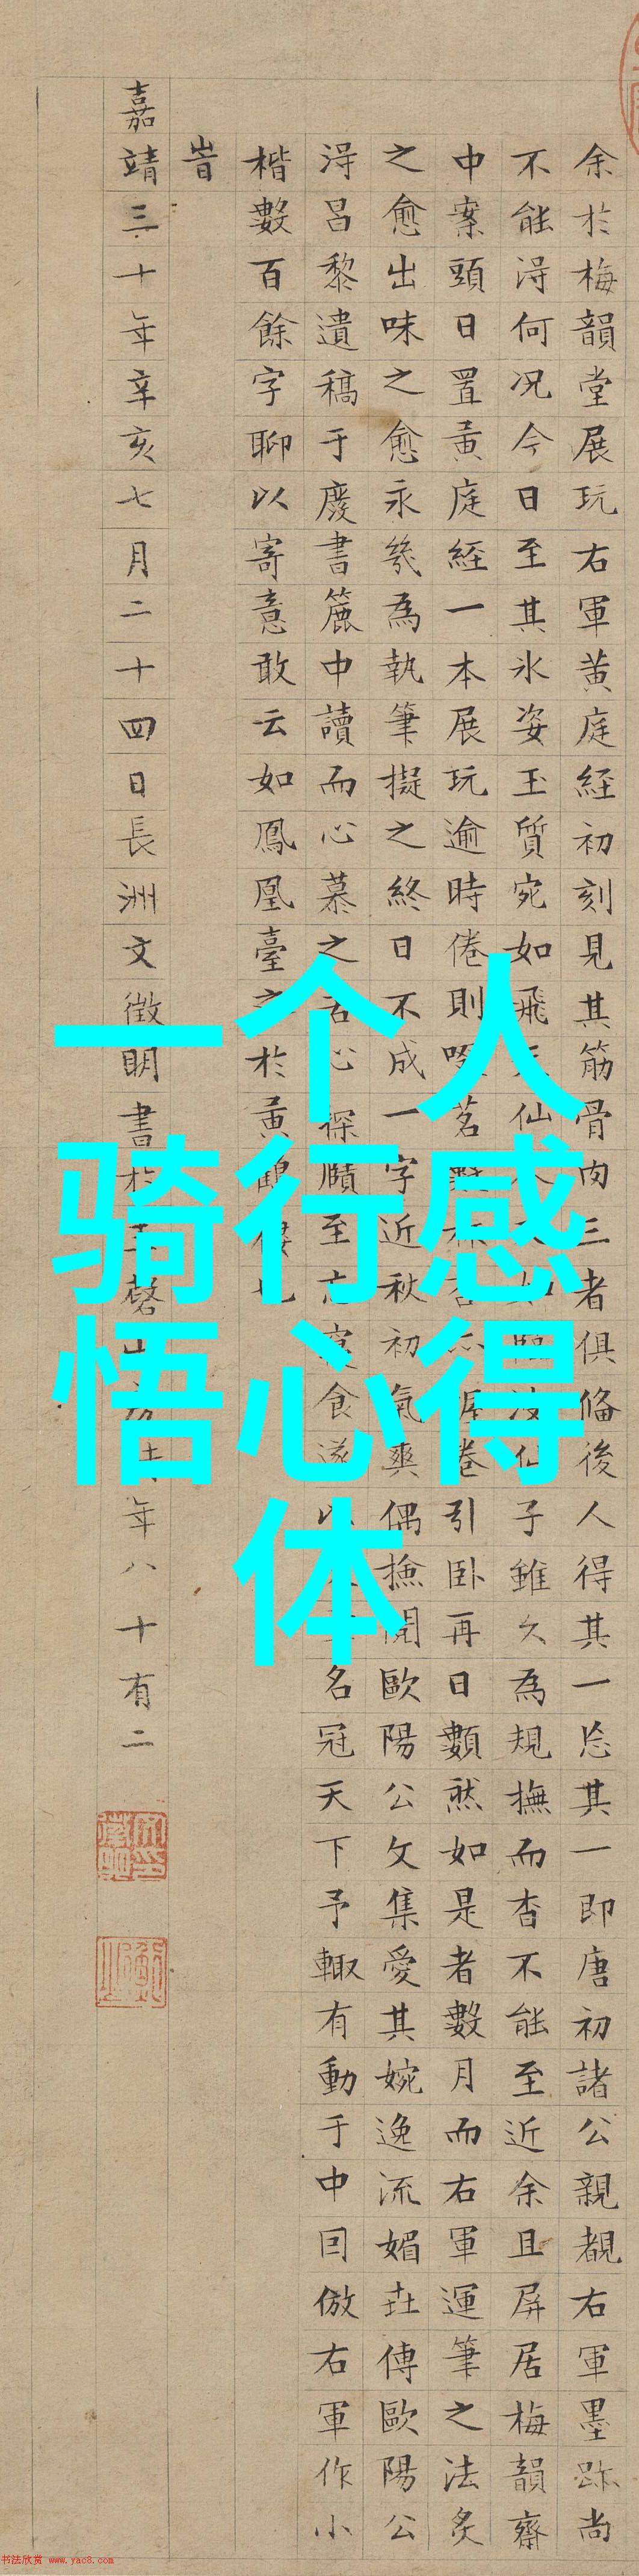 一个人
骑行感
悟心得
体
余於梅韻堂展玩右軍黄庭経初刻見其筋骨肉三者俱俻後人得其一忘其一即唐初諸公親覩右軍墨跡尚
不能淂何况今日至其氷姿玉質宛如飛仙子雖久為規撫而杳不能至近余且屏居梅韻齋
中案頭日置黄庭経一本展玩逾時倦則啜茗卷引卧再日數然如是者數月而右軍運筆之法炙
之愈出味之愈永幾為執筆擬之終日不成一字近秋初氣爽偶撿閱歐陽公文集愛其婉逸流媚世傳歐陽公
淂昌黎遺稿于廢書簏中讀而心慕之苦心探賾至忘寢食遂以名冠天下予輙有動于中因倣右軍作小
楷數百餘字聊以寄意敢云如鳳凰臺之於黄鶴樓也
旹
嘉靖三十年辛亥七月二十四日長洲文徴明書於玉磬山房時年八十有二
书法欣赏 www.yac8.com